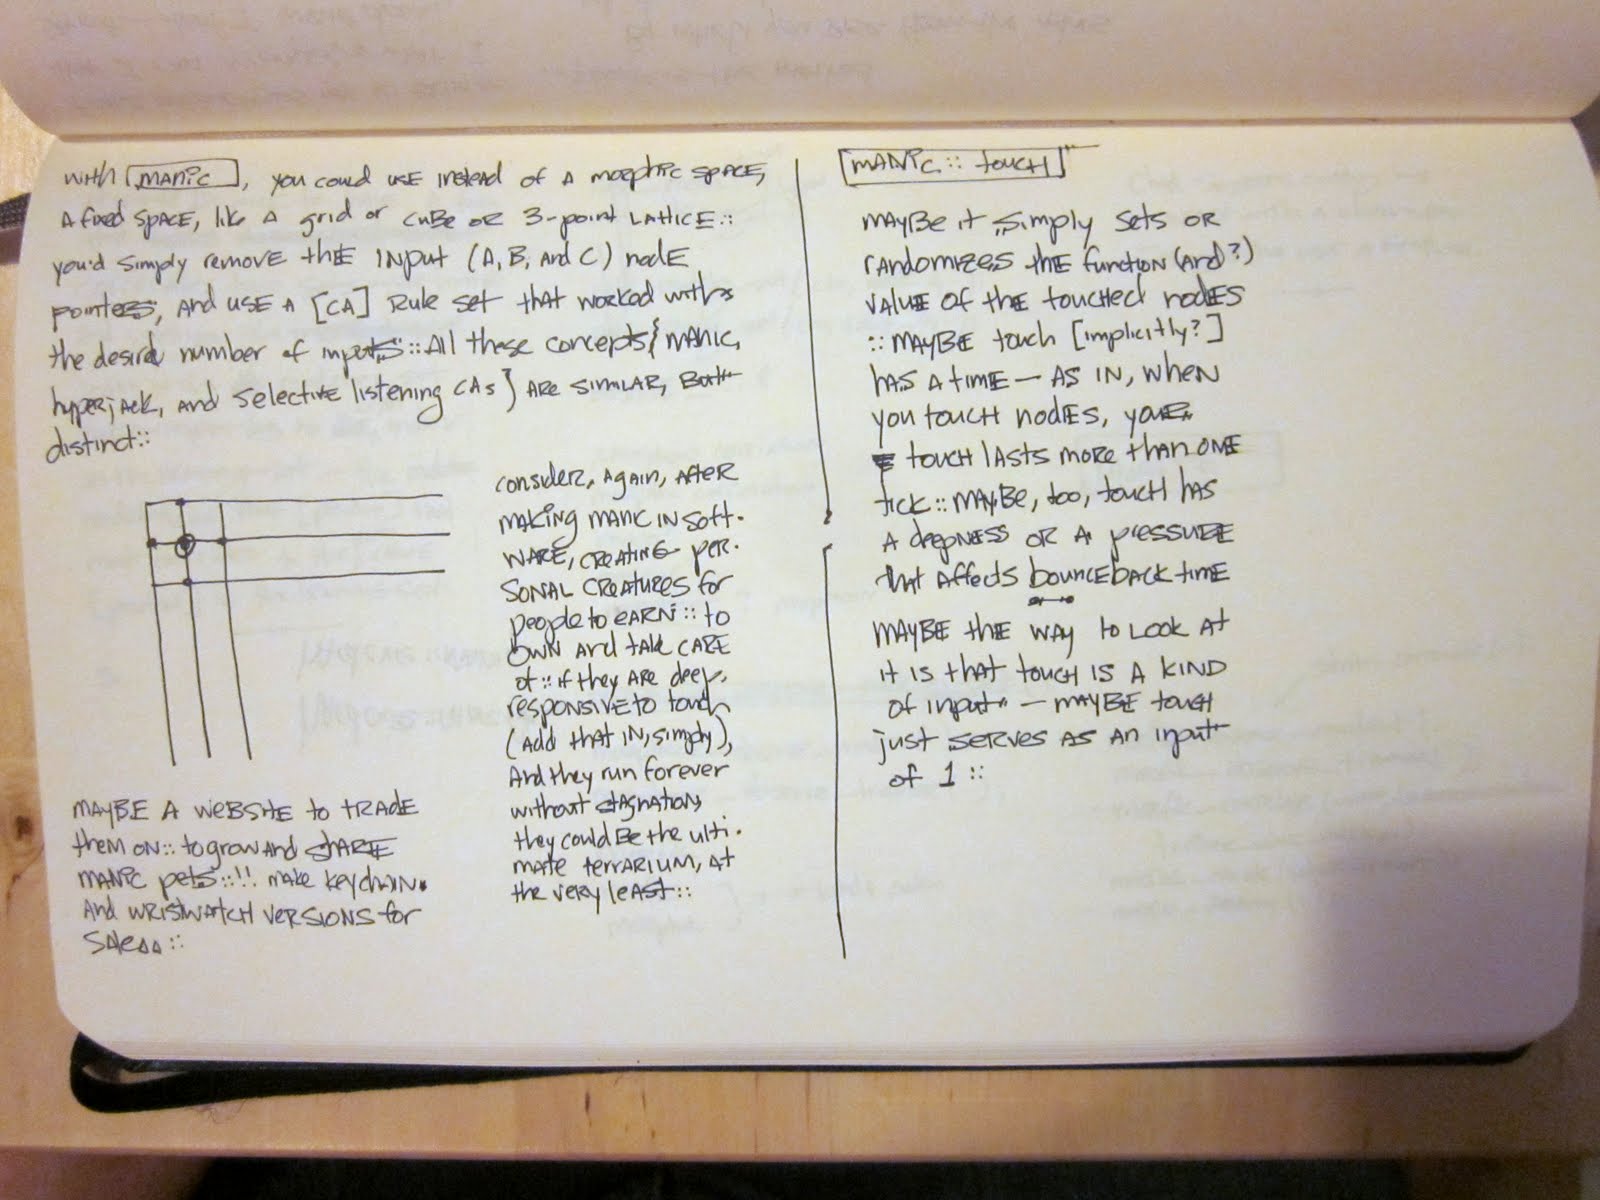 with [MANIC], you could use instead of a morphic space,
A fixed space, like A grid or cube or 3-point lattice::
you'd simply remove the input (A, B, and C) node
pointers, and use a [CA] rule set that worked with
the desired number of inputs:: All these concepts {MANIC,
hyperjack, and selective listening CAs} are similar, but
distinct::
consider, again, after
making manic in soft-
ware, creating per-
sonal creatures for
people to earn :: to
own and take care
of :: if they are deep,
responsive to touch
(add that in, simply),
And they run forever
without stagnation,
they could be the ulti-
mate terrarium, at
the very least::
maybe a website to trade
them on:: to grow and share
manic pets::!! make keychain
and wristwatch versions for
sale ::
[MANIC:: touch]
maybe it simply sets or
randomizes the function (and?)
value of the touched nodes
:: maybe touch [implicitly?]
has a time — as in, when
you touch nodes, your
touch lasts more than one
tick :: maybe, too, touch has
a deepness or a pressure
that affects bounceback time
maybe the way to look at
it is that touch is a kind
of input — maybe touch
just serves as an input
of 1 ::